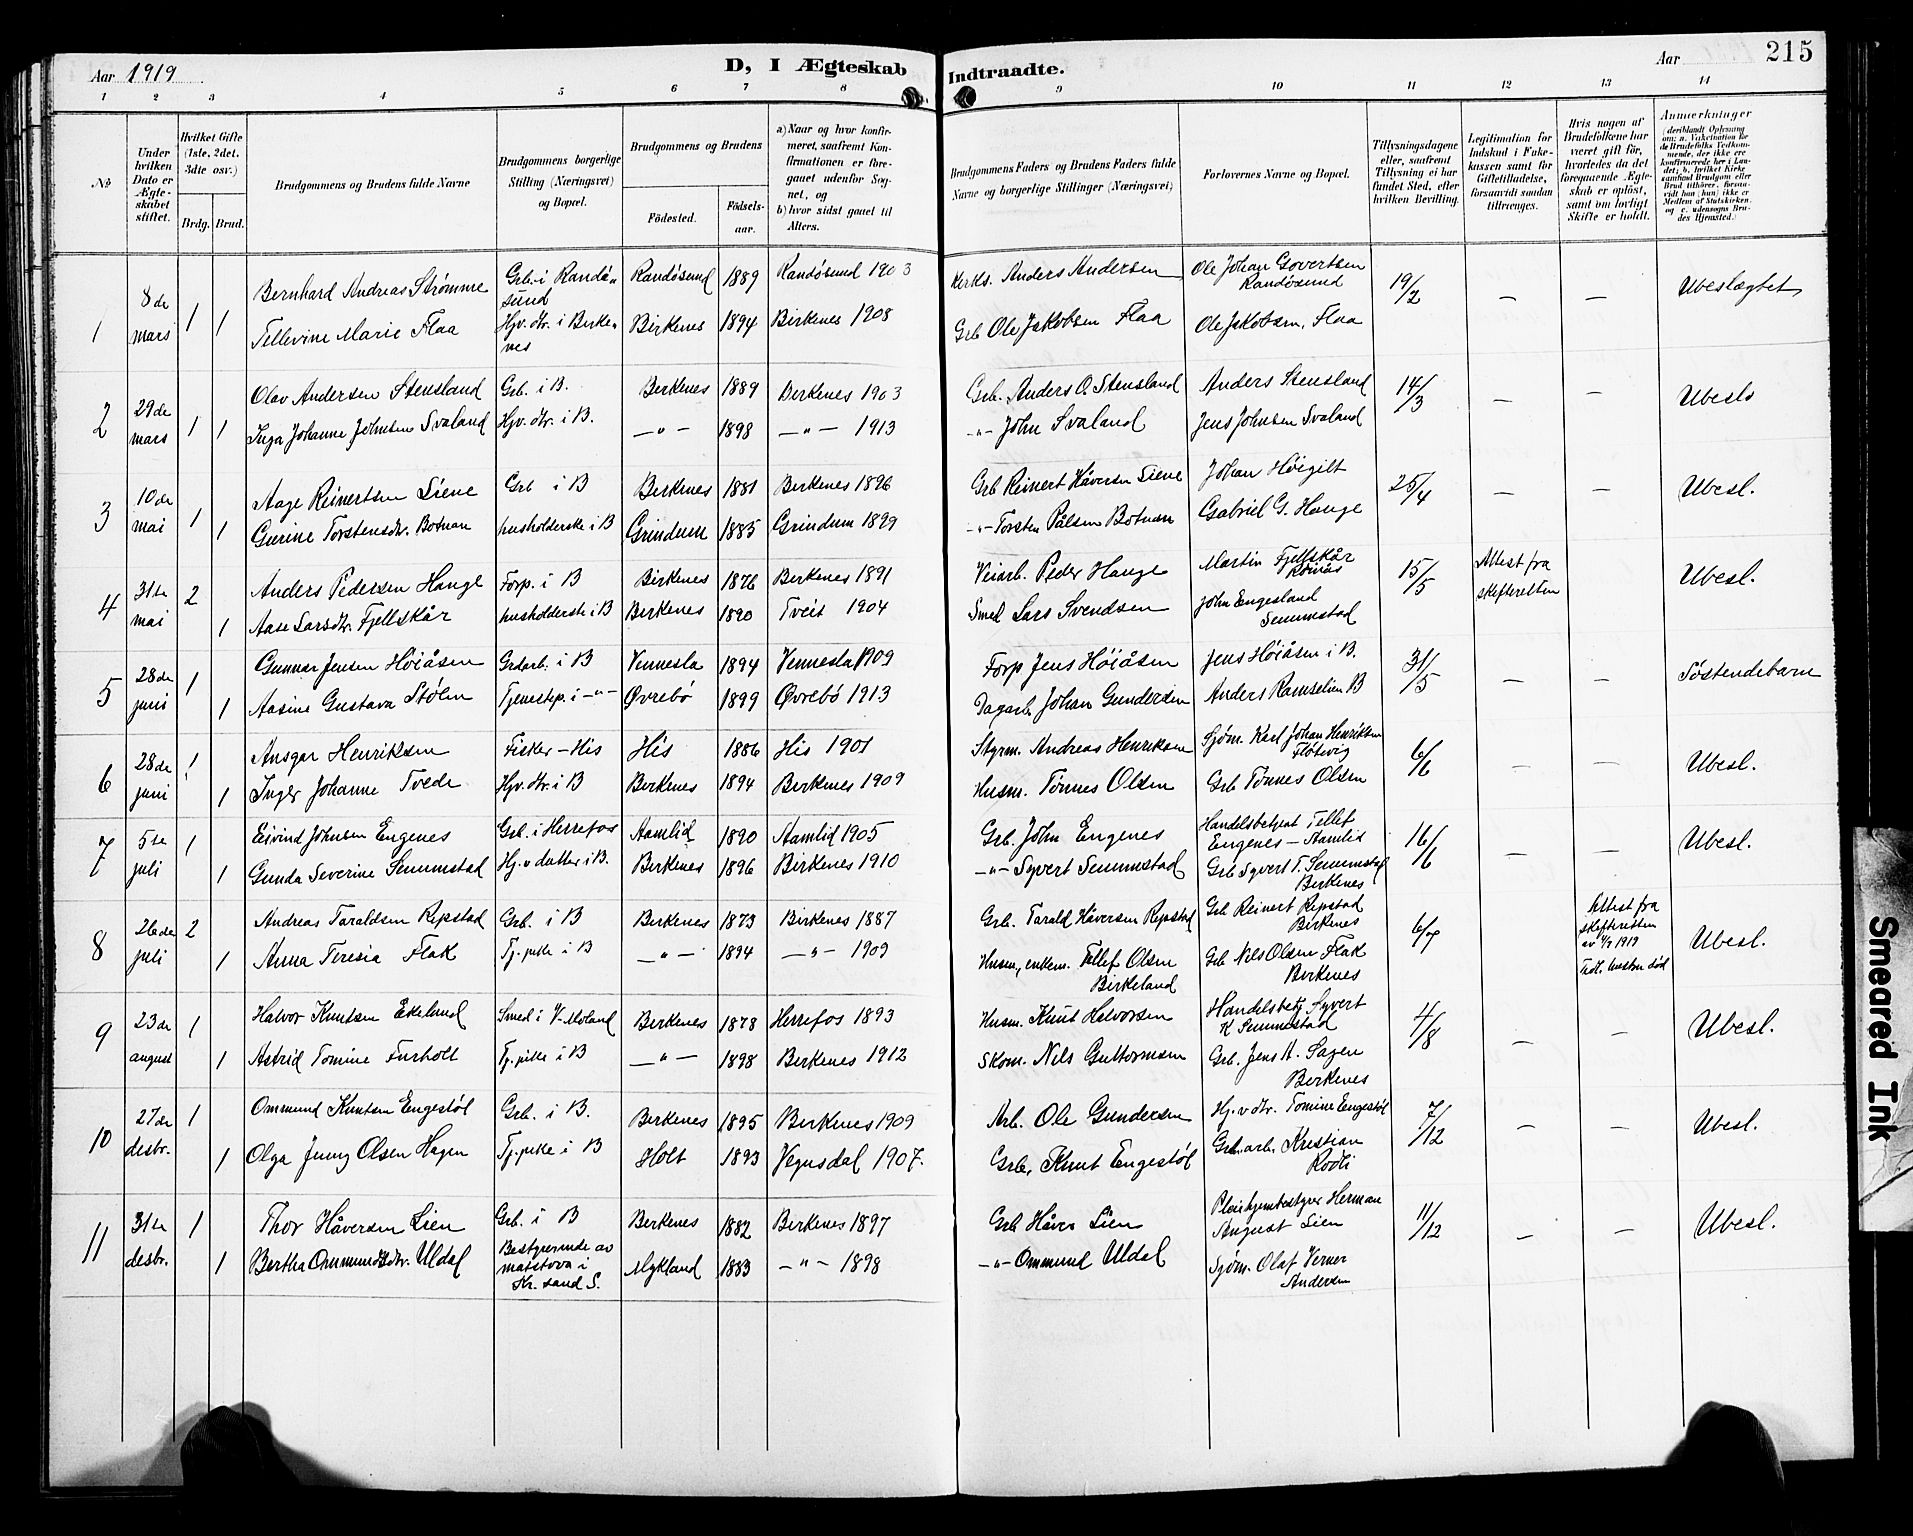 215
Aar 1919
D, I Ægteskab Indtraadte.
Aar
1 2 3 4 5 6 7 8 9 10 11 12 13 14
No
Under hvilken Dato er Ægteskabet stiftet.
Hvilket Gifte (1ste, 2det, 3die osv.)
Brdg. Brud.
Brudgommens og Brudens fulde Navne
Brudgommens borgerlige Stilling (Næringsvei) og Bopæl.
Brudgommens og Brudens
Födested.
Födselsaar.
a) Naar og hvor konfirmeret, saafremt Konfirmationen er foregaaet udenfor Sognet, og
b) hvor sidst gaaet til Alters.
Brudgommens Faders og Brudens Faders fulde Navne og borgerlige Stillinger (Næringsvei)
Forlovernes Navne og Bopæl.
Tillysningsdagene eller, saafremt Tillysning ei har fundet Sted, efter hvilken Bevilling.
Legitimation for Indskud i Enkekassen samt for Giftetilladelse, forsaavidt saadan tiltrænges.
Hvis nogen af Brudefolkene har været gift før, hvorledes da det foregaaende Ægteskab er oplöst, samt om lovligt Skifte er holdt.
Anmærkninger (deriblandt Oplysning om: a. Vakcination for de Brudefolks Vedkommende, der ikke ere konfirmerede her i Landet; b. hvilket Kirkesamfund Brudgom eller Brud tilhörer, forsaavidt han (hun) ikke er Medlem af Statskirken, og c. udensogns Brudes Hjemsted.)
1 8de mars 1 Bernhard Andreas Strømme Grb. i Randøsund Randøsund 1889 Randøsund 1903 Kirks. Anders Andersen Ole Johan Govertsen Randøsund 19/2 — — Ubeslægtet
1 Tellevine Marie Flaa Hjv. dtr. i Birkenes Birkenes 1894 Birkenes 1908 Grb Ole Jakobsen Flaa Ole Jakobsen, Flaa
2 29de mars 1 Olav Andersen Stensland Grb. i B. Birkenes 1889 Birkenes 1903 Grb. Anders O. Stensland Anders Stensland 14/3 — — Ubesl
1 Inga Johanne Johnsen Svaland Hjv. dtr. i B. —"— 1898 —"— 1913 -"- John Svaland Jens Johnsen Svaland
3 10de mai 1 Aage Reinertsen Liene Grb i B Birkenes 1881 Birkenes 1896 Grb Reinert Håversen Liene Johan Høigilt 25/4 — — Ubesl.
1 Gurine Torstensdtr. Botnan husholderske i B Grindum 1885 Grindum 1899 -"- Torsten Pålsen Botnan Gabriel G. Hauge
4 31te mai 2 Anders Pedersen Hauge Forp. i B Birkenes 1876 Birkenes 1891 Veiarb. Peder Hauge Martin Fjellskår 15/5 Attest fra skifteretten Ubesl.
1 Aase Larsdtr. Fjellskår husholderske i B Birkenes 1890 Tveit 1904 Smed Lars Svendsen John Engesland Senumstad
5 28de juni 1 Gunnar Jensen Høiåsen Grdarb. i B Vennesla 1894 Vennesla 1909 Forp Jens Høiåsen Jens Høiåsen i B. 31/5 — — Søskendebarn
1 Aasine Gustava Stølen Tjenestp. i -"- Øvrebø 1899 Øvrebø 1913 Dagarb. Johan Gundersen Anders Ramselien B
6 28de juni 1 Ansgar Henriksen Fisker - His His 1886 His 1901 Styrm. Andreas Henriksen Sjøm. Karl Johan Henriksen Fløtevig 6/6 — — Ubesl.
1 Inger Johanne Tvede Hjv. dtr. i B Birkenes 1894 Birkenes 1909 Husm. Tønnes Olsen Grb Tønnes Olsen
7 5te juli 1 Eivind Johnsen Engenes Grb. i Herrefos Aamlid 1890 Aamlid 1905 Grb. John Engenes Handelsbetjent Tellef Engenes - Aamlid 16/6 — — Ubesl.
1 Gunda Severine Senumstad Hj. v datter i B. Birkenes 1896 Birkenes 1910 -"- Syvert Senumstad Grb Syvert T. Senumstad Birkenes
8 26de juli 2 Andreas Taraldsen Repstad Grb. i B Birkenes 1873 Birkenes 1887 Grb. Tarald Håversen Repstad Grb Reinert Repstad Birkenes 6/7 Attest fra skifteretten av 4/7 1919 Tidl. hustru död Ubesl.
1 Anna Teresia Flak Tj. pike i B —"— 1894 —"— 1909 Husm., enkem. Tellef Olsen Birkeland Grb Nils Olsen Flak Birkenes
9 23de august 1 Halvor Knutsen Ekelund Smed i V-Moland Birkenes 1878 Herrefos 1893 Husm. Knut Halvorsen Handelsbetj Syvert K Senumstad 4/8 — — Ubesl.
1 Astrid Tomine Furholt Tj. pike i B —"— 1898 Birkenes 1912 Skom. Nils Guttormsen Grb. Jens A. Sagen Birkenes
10 27de desbr. 1 Ommund Knutsen Engestøl Grb. i B. Birkenes 1895 Birkenes 1909 Arb. Ole Gundersen Hj. v dtr. Tomine Engestøl 7/12 — — Ubesl.
1 Olga Jenny Olsen Hagen Tj. pike i B Holt 1893 Vegusdal 1907. Grb. Knut Engestøl Grb. arb. Kristian
11 31te desbr. 1 Thor Håversen Lien Grb. i B Birkenes 1882 Birkenes 1897 Grb Håver Lien Pleiehjembestyrer Herman August Lien 11/12 — — Ubesl.
1 Bertha Ommundsdtr. Uldal Bestyrerinde av matstova i Kr. sand S. Mykland 1883 —"— 1898 -"- Ommund Uldal Sjøm. Olaf Verner Andersen
Smeared Ink